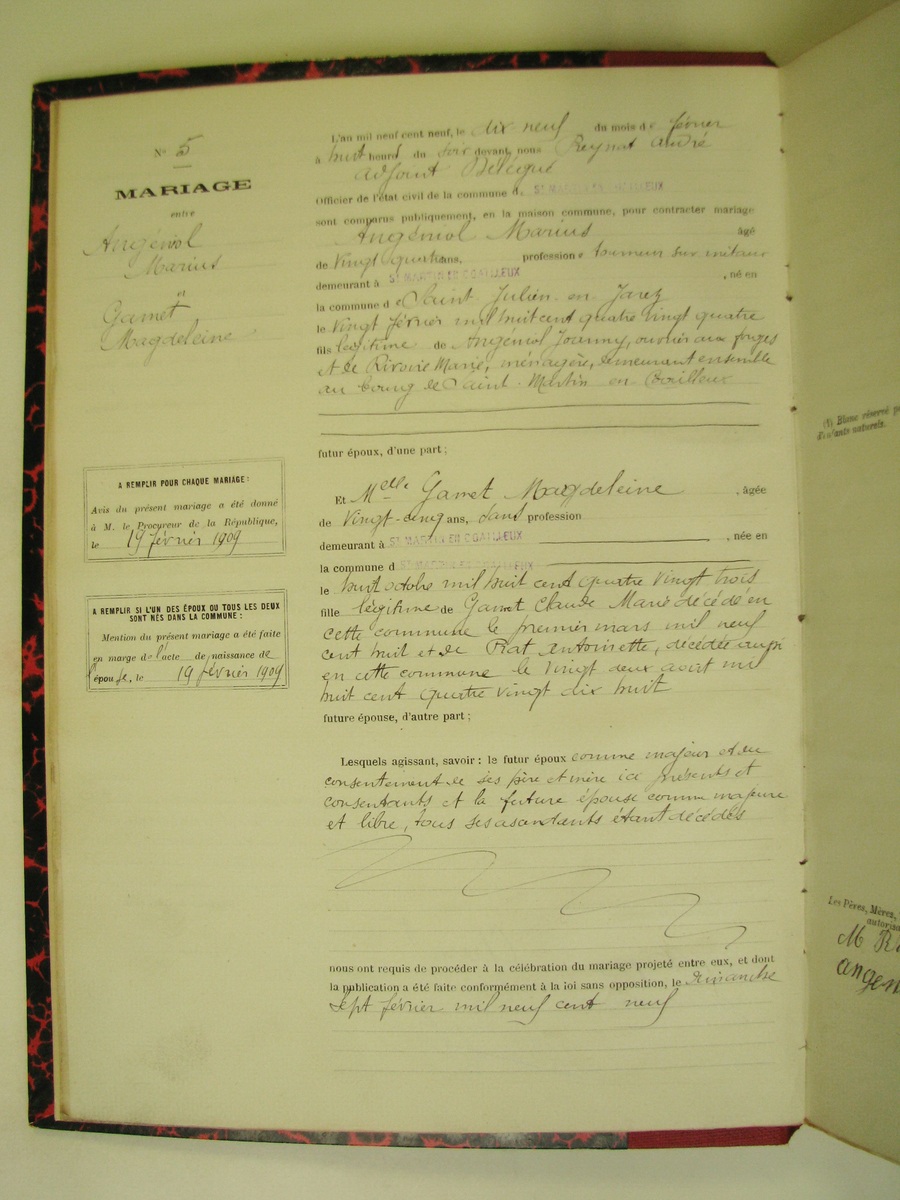 N° 5
MARIAGE
entre
Angéniol
Marius
et
Gamet
Magdeleine
A REMPLIR POUR CHAQUE MARIAGE :
Avis du présent mariage a été donné
à M. le Procureur de la République,
le 19 février 1909
A REMPLIR SI L'UN DES ÉPOUX OU TOUS LES DEUX
SONT NÉS DANS LA COMMUNE :
Mention du présent mariage a été faite
en marge de l'acte de naissance de
l'épouse, le 19 février 1909
L'an mil neuf cent neuf, le dix neuf du mois de février
à huit heures du soir devant, nous Reynat André
adjoint Délégué
Officier de l'état civil de la commune d ST MARTIN EN COAILLEUX
sont comparus publiquement, en la maison commune, pour contracter mariage
Angéniol Marius âgé
de Vingt quatre ans, profession de tourneur sur métaux
demeurant à ST MARTIN EN COAILLEUX , né en
la commune de Saint Julien en Jarez
le Vingt février mil huit cent quatre vingt quatre
fils légitime de Angéniol Joanny, ouvrier aux forges
et de Rivoire Marie, ménagère, demeurant ensemble
au bourg de Saint-Martin en Coailleux
futur époux, d'une part ;
Et Melle Gamet Magdeleine , âgée
de Vingt-cinq ans, sans profession
demeurant à ST MARTIN EN COAILLEUX , née en
la commune d ST MARTIN EN COAILLEUX
le huit octobre mil huit cent quatre vingt trois
fille légitime de Gamet Claude Marie décédé en
cette commune le premier mars mil neuf
cent huit et de Prat Antoinette, décédée aussi
en cette commune le vingt deux août mil
huit cent quatre vingt dix huit
future épouse, d'autre part ;
Lesquels agissant, savoir : le futur époux comme majeur et du
consentement de ses père et mère ici présents et
consentants et la future épouse comme majeure
et libre, tous ses ascendants étant décédés
nous ont requis de procéder à la célébration du mariage projeté entre eux, et dont
la publication a été faite conformément à la loi sans opposition, le Dimanche
sept février mil neuf cent neuf
(1) Blanc réservé
d'enfants naturels.
Les Pères, Mères,
M R
ange